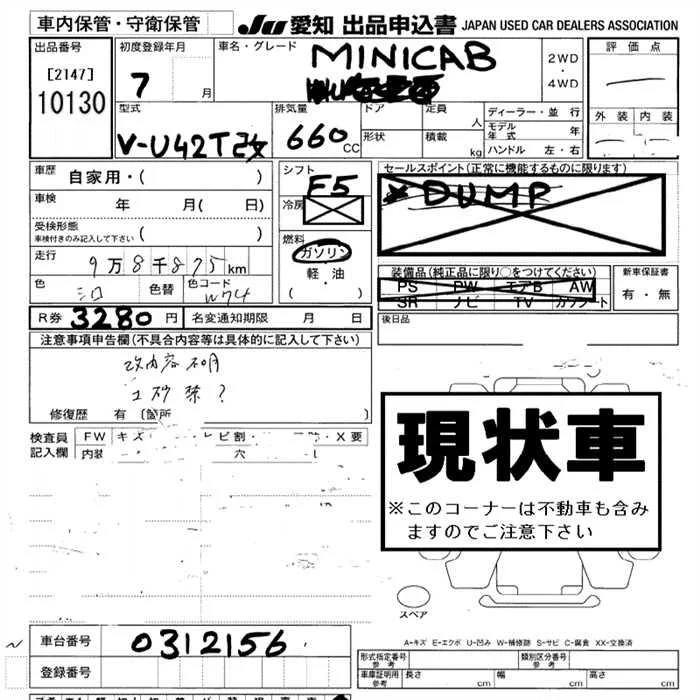 車内保管・守衛保管 JU 愛知 出品申込書 JAPAN USED CAR DEALERS ASSOCIATION
出品番号 初度登録年月 車名・グレード MINICAB 2WD・4WD 評価点
[2147]
10130 7 月
型式 排気量 ドア 定員 人 ディーラー・並行 外装 内装
V-U42T改 660 CC 形状 積載 kg モデル年式 年
ハンドル 左・右
車歴 自家用・( ) シフト F5 セールスポイント(正常に機能するものに限ります)
車検 年 月( 日) 冷房 DUMP
受検形態
車検付きのみ記入して下さい ( ) 燃料
走行 9万8千875km ガソリン 装備品(純正品に限り○をつけてください) 新車保証書
色 シロ 色替 色コード W74 軽・油 PS PW エアB AW 有・無
( ・ ) SR ナビ TV カワシート
R券 3280 円 名変通知期限 月 日 後日品
注意事項申告欄(不具合内容等は具体的に記入して下さい)
改内容不明
土砂禁?
修復歴 有 〔箇所 〕
現状車
※このコーナーは不動車も含み
ますのでご注意下さい
検査員 FW キズ ビ割・ ・X要
記入欄 内装 穴
スペア
A-キズ E-エクボ U-凹み W-補修跡 S-サビ C-腐食 XX-交換済
車台番号 0312156
登録番号
形式指定番号 参考 類別区分番号 参考
車庫証明用 参考 長さ cm 幅 cm 高さ cm